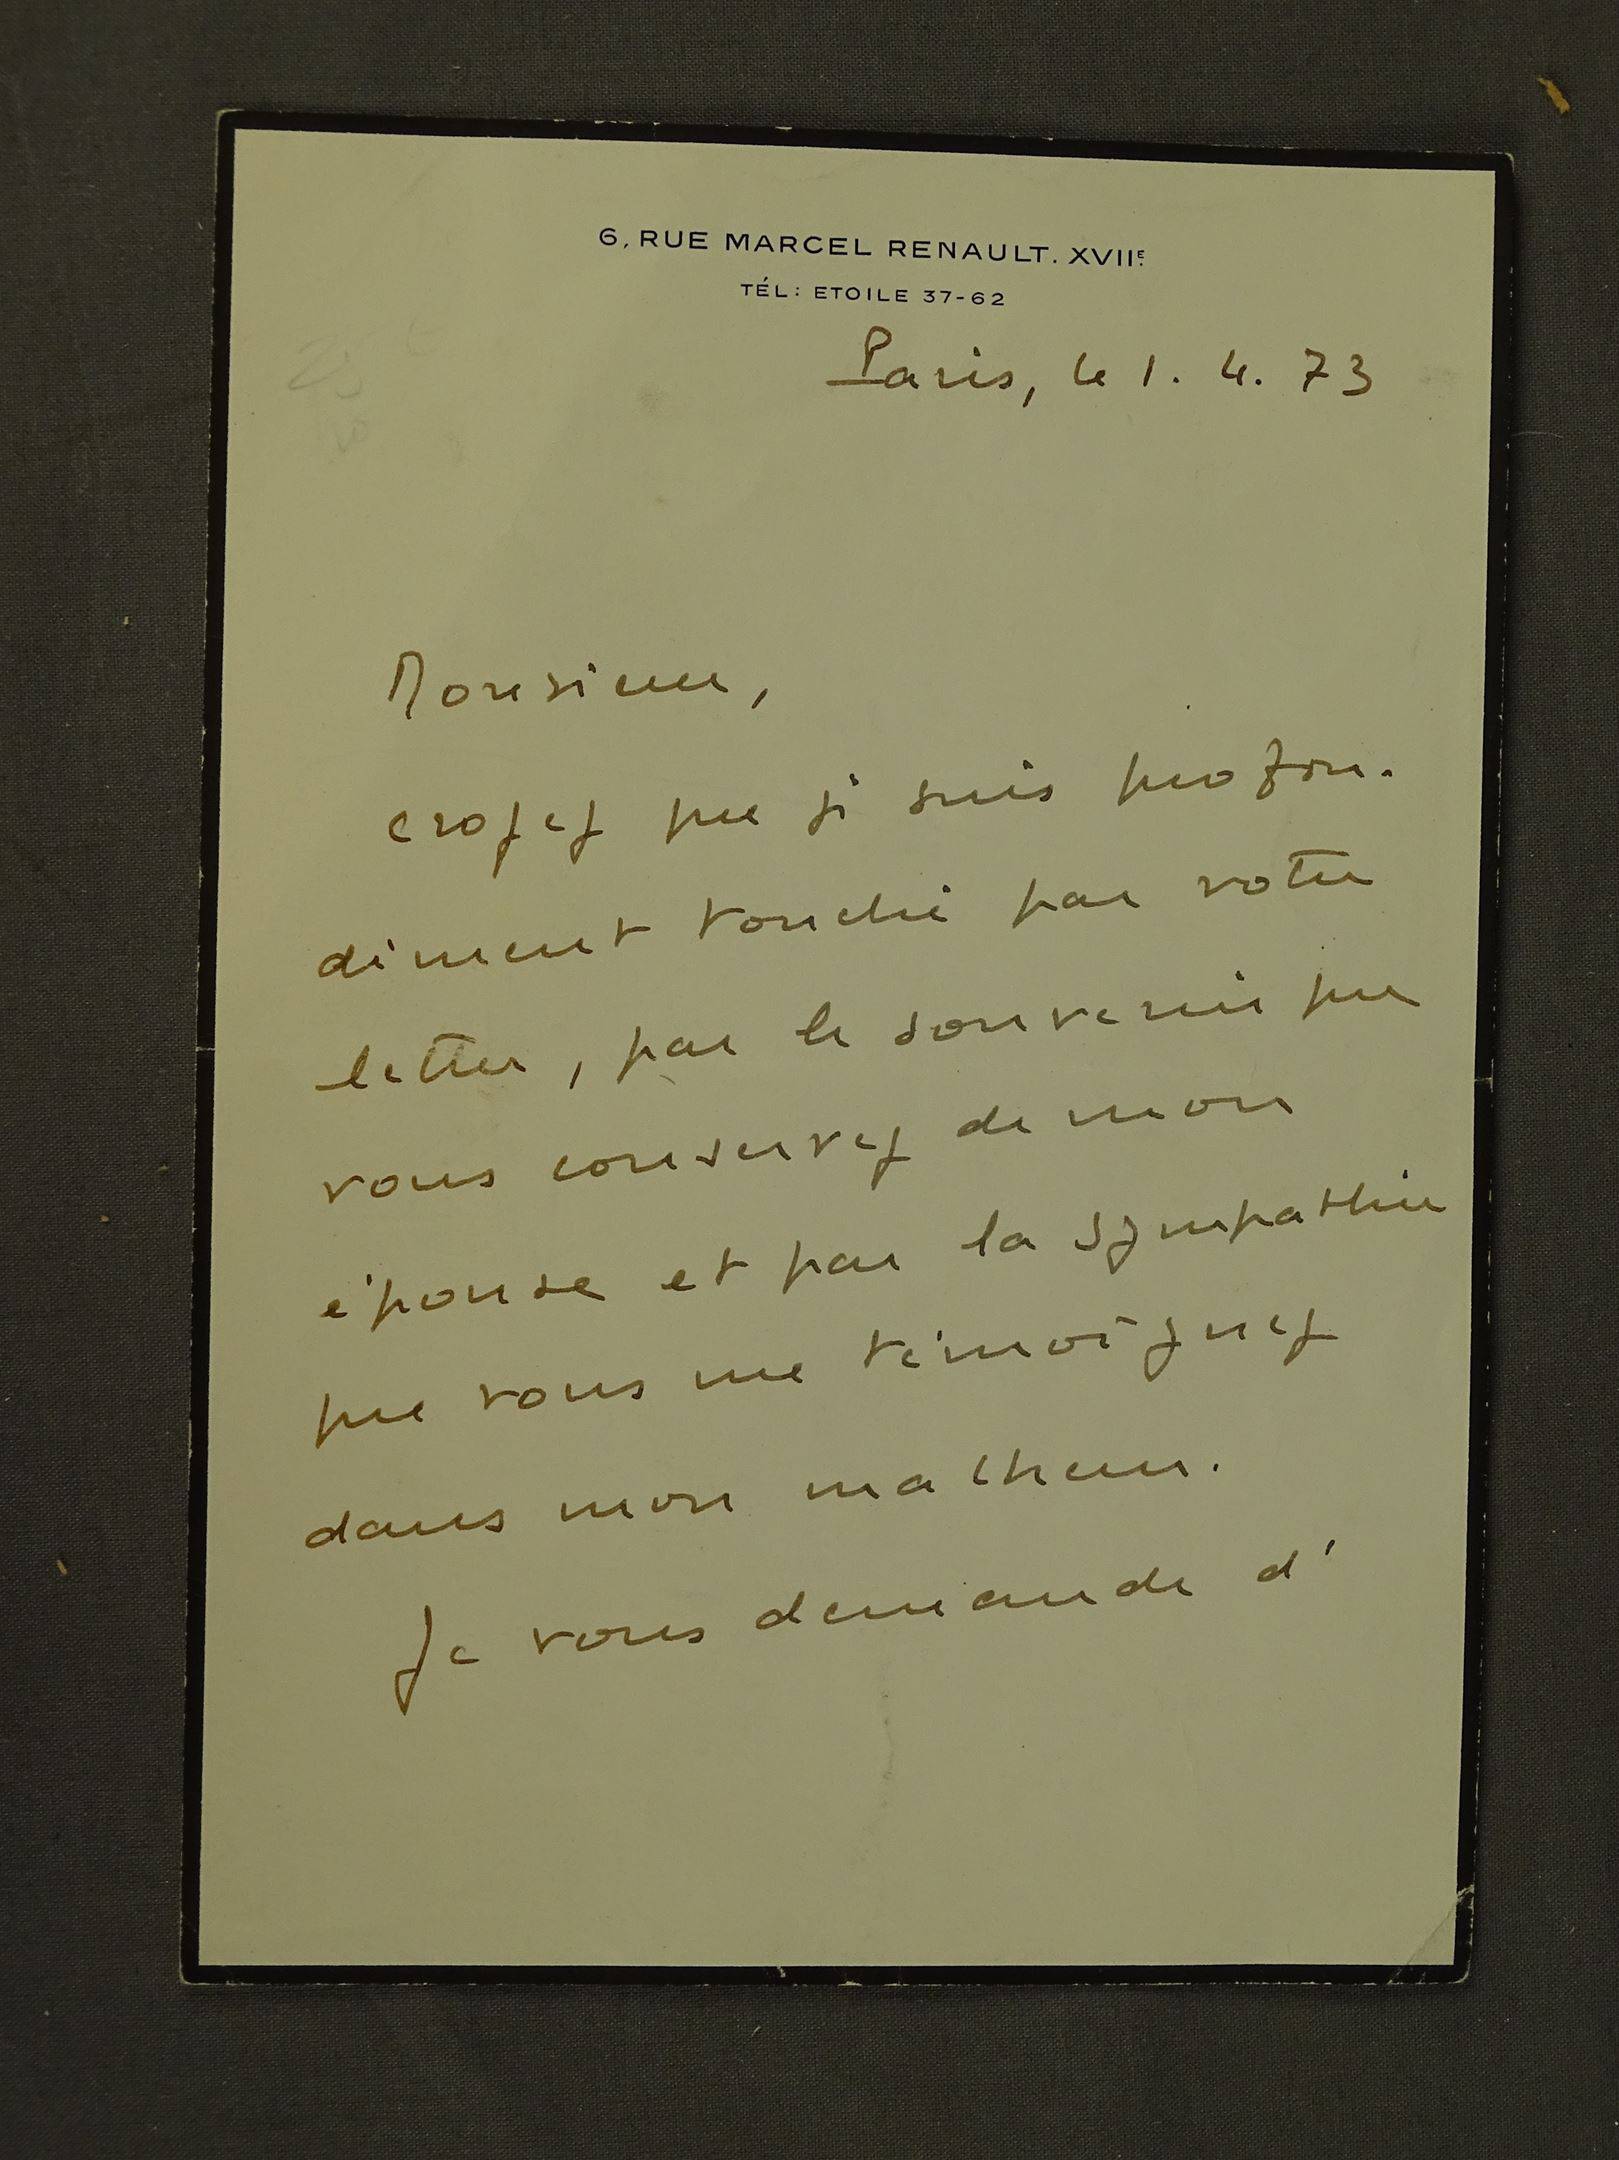 6, RUE MARCEL RENAULT. XVIIE.
TÉL: ETOILE 37-62
Paris, le 1. 4. 73
Monsieur,
croyez que je suis profon-
dément touché par votre
lettre, par le souvenir que
vous conservez de mon
épouse et par la sympathie
que vous me témoignez
dans mon malheur.
Je vous demande d'